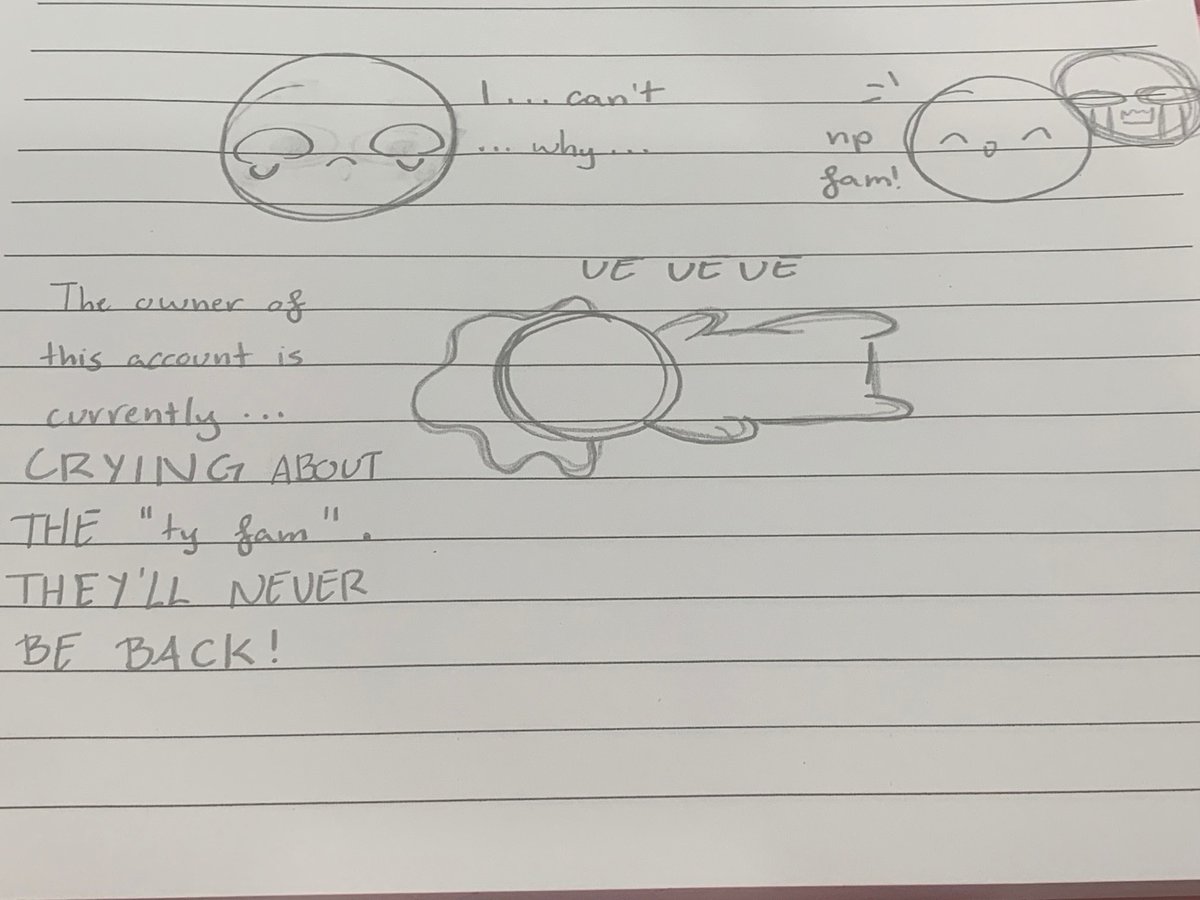 I... can't
... why...
np
fam!
UE UE UE
The owner of
this account is
currently...
CRYING ABOUT
THE "ty fam".
THEY'LL NEVER
BE BACK!